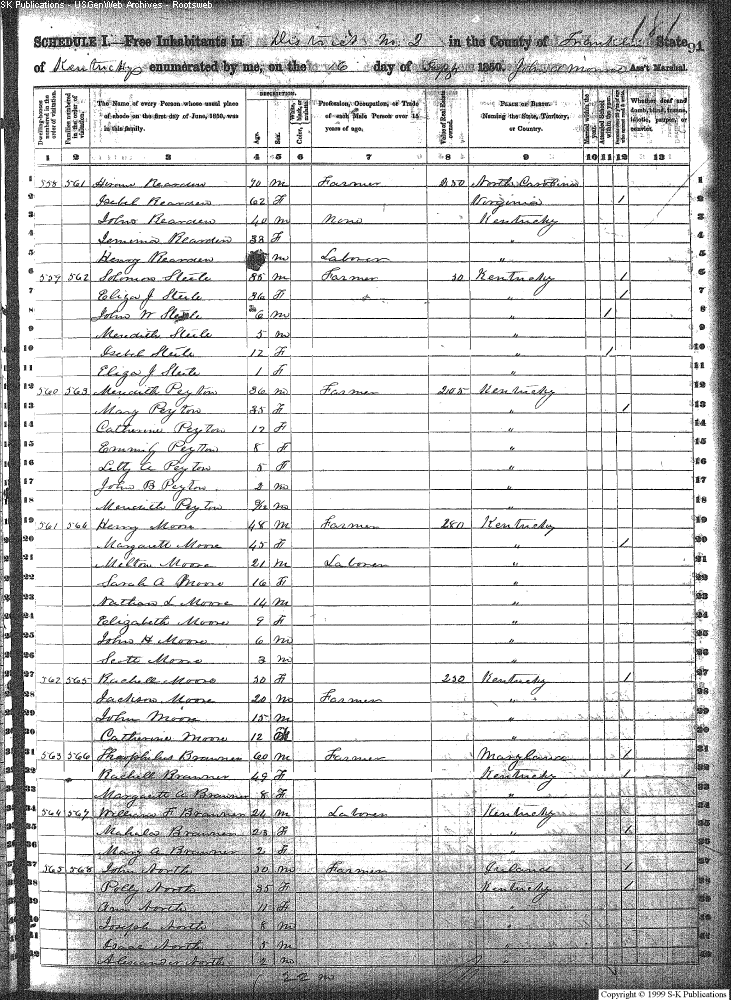 S-K Publications - USGenWeb Archives - Rootsweb
181
SCHEDULE I.—Free Inhabitants in District No. 2 in the County of Franklin State 91
of Kentucky enumerated by me, on the 16 day of Sept 1850. John Ass't Marshal.
Dwelling-houses numbered in the order of visitation.
Families numbered in the order of visitation.
The Name of every Person whose usual place of abode on the first day of June, 1850, was in this family.
DESCRIPTION.
Age.
Sex.
Color, White, black, or mulatto.
Profession, Occupation, or Trade of each Male Person over 15 years of age.
Value of Real Estate owned.
PLACE OF BIRTH.
Naming the State, Territory, or Country.
Married within the year.
Attended School within the year.
Persons over 20 y'rs of age who cannot read & write.
Whether deaf and dumb, blind, insane, idiotic, pauper, or convict.
1 2 3 4 5 6 7 8 9 10 11 12 13
1 558 561 Rearden 70 M Farmer North Carolina 1
2 Isabel Rearden 62 F Virginia / 2
3 John Rearden 40 M None Kentucky 3
4 Jemima Rearden 38 F " 4
5 Henry Rearden M Laborer " 5
6 559 562 Solomon Steele 35 M Farmer 50 Kentucky / 6
7 Eliza J Steele 36 F " / 7
8 John W Steele 6 M " / 8
9 Meredith Steele 5 M " 9
10 Isabel Steele 12 F " / 10
11 Eliza J Steele 1 F " 11
12 560 563 Meredith Peyton 36 M Farmer Kentucky 12
13 Mary Peyton 35 F " / 13
14 Catherine Peyton 12 F " 14
15 Emmily Peyton 8 F " 15
16 Letty A Peyton 5 F " 16
17 John B Peyton 2 M " 17
18 Meredith Peyton 9/12 M " 18
19 561 564 Henry Moore 48 M Farmer 280 Kentucky 19
20 Margarett Moore 45 F " / 20
21 Melton Moore 21 M Laborer " 21
22 Sarah A Moore 16 F " 22
23 Nathan L Moore 14 M " 23
24 Elizabeth Moore 9 F " 24
25 John H Moore 6 M " 25
26 Scott Moore 3 M " 26
27 562 565 Rachell Moore 50 F 250 Kentucky / 27
28 Jackson Moore 20 M Farmer " 28
29 John Moore 15 M " 29
30 Catherine Moore 12 " 30
31 563 566 Theophulus Brawner 60 M Farmer Maryland / 31
32 Rachell Brawner 49 F Kentucky / 32
33 Margarett A Brawner 8 F " 33
34 564 567 William F Brawner 24 M Laborer Kentucky 34
35 Mahala Brawner 23 F " / 35
36 Mary A Brawner 2 F " 36
37 565 568 John North 50 M Farmer Ireland / 37
38 Polly North 35 F Kentucky / 38
39 Ann North 11 F " 39
40 Joseph North 8 M " 40
41 Isaac North 5 M " 41
42 Alexander North 2 M " 42
22 m
Copyright © 1999 S-K Publications